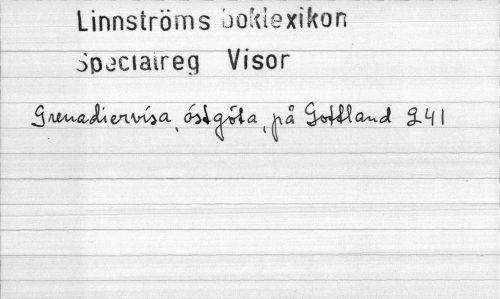 Linnströms boklexikon
Specialreg Visor
Grenadiervisa, östgöta, på Gottland 241